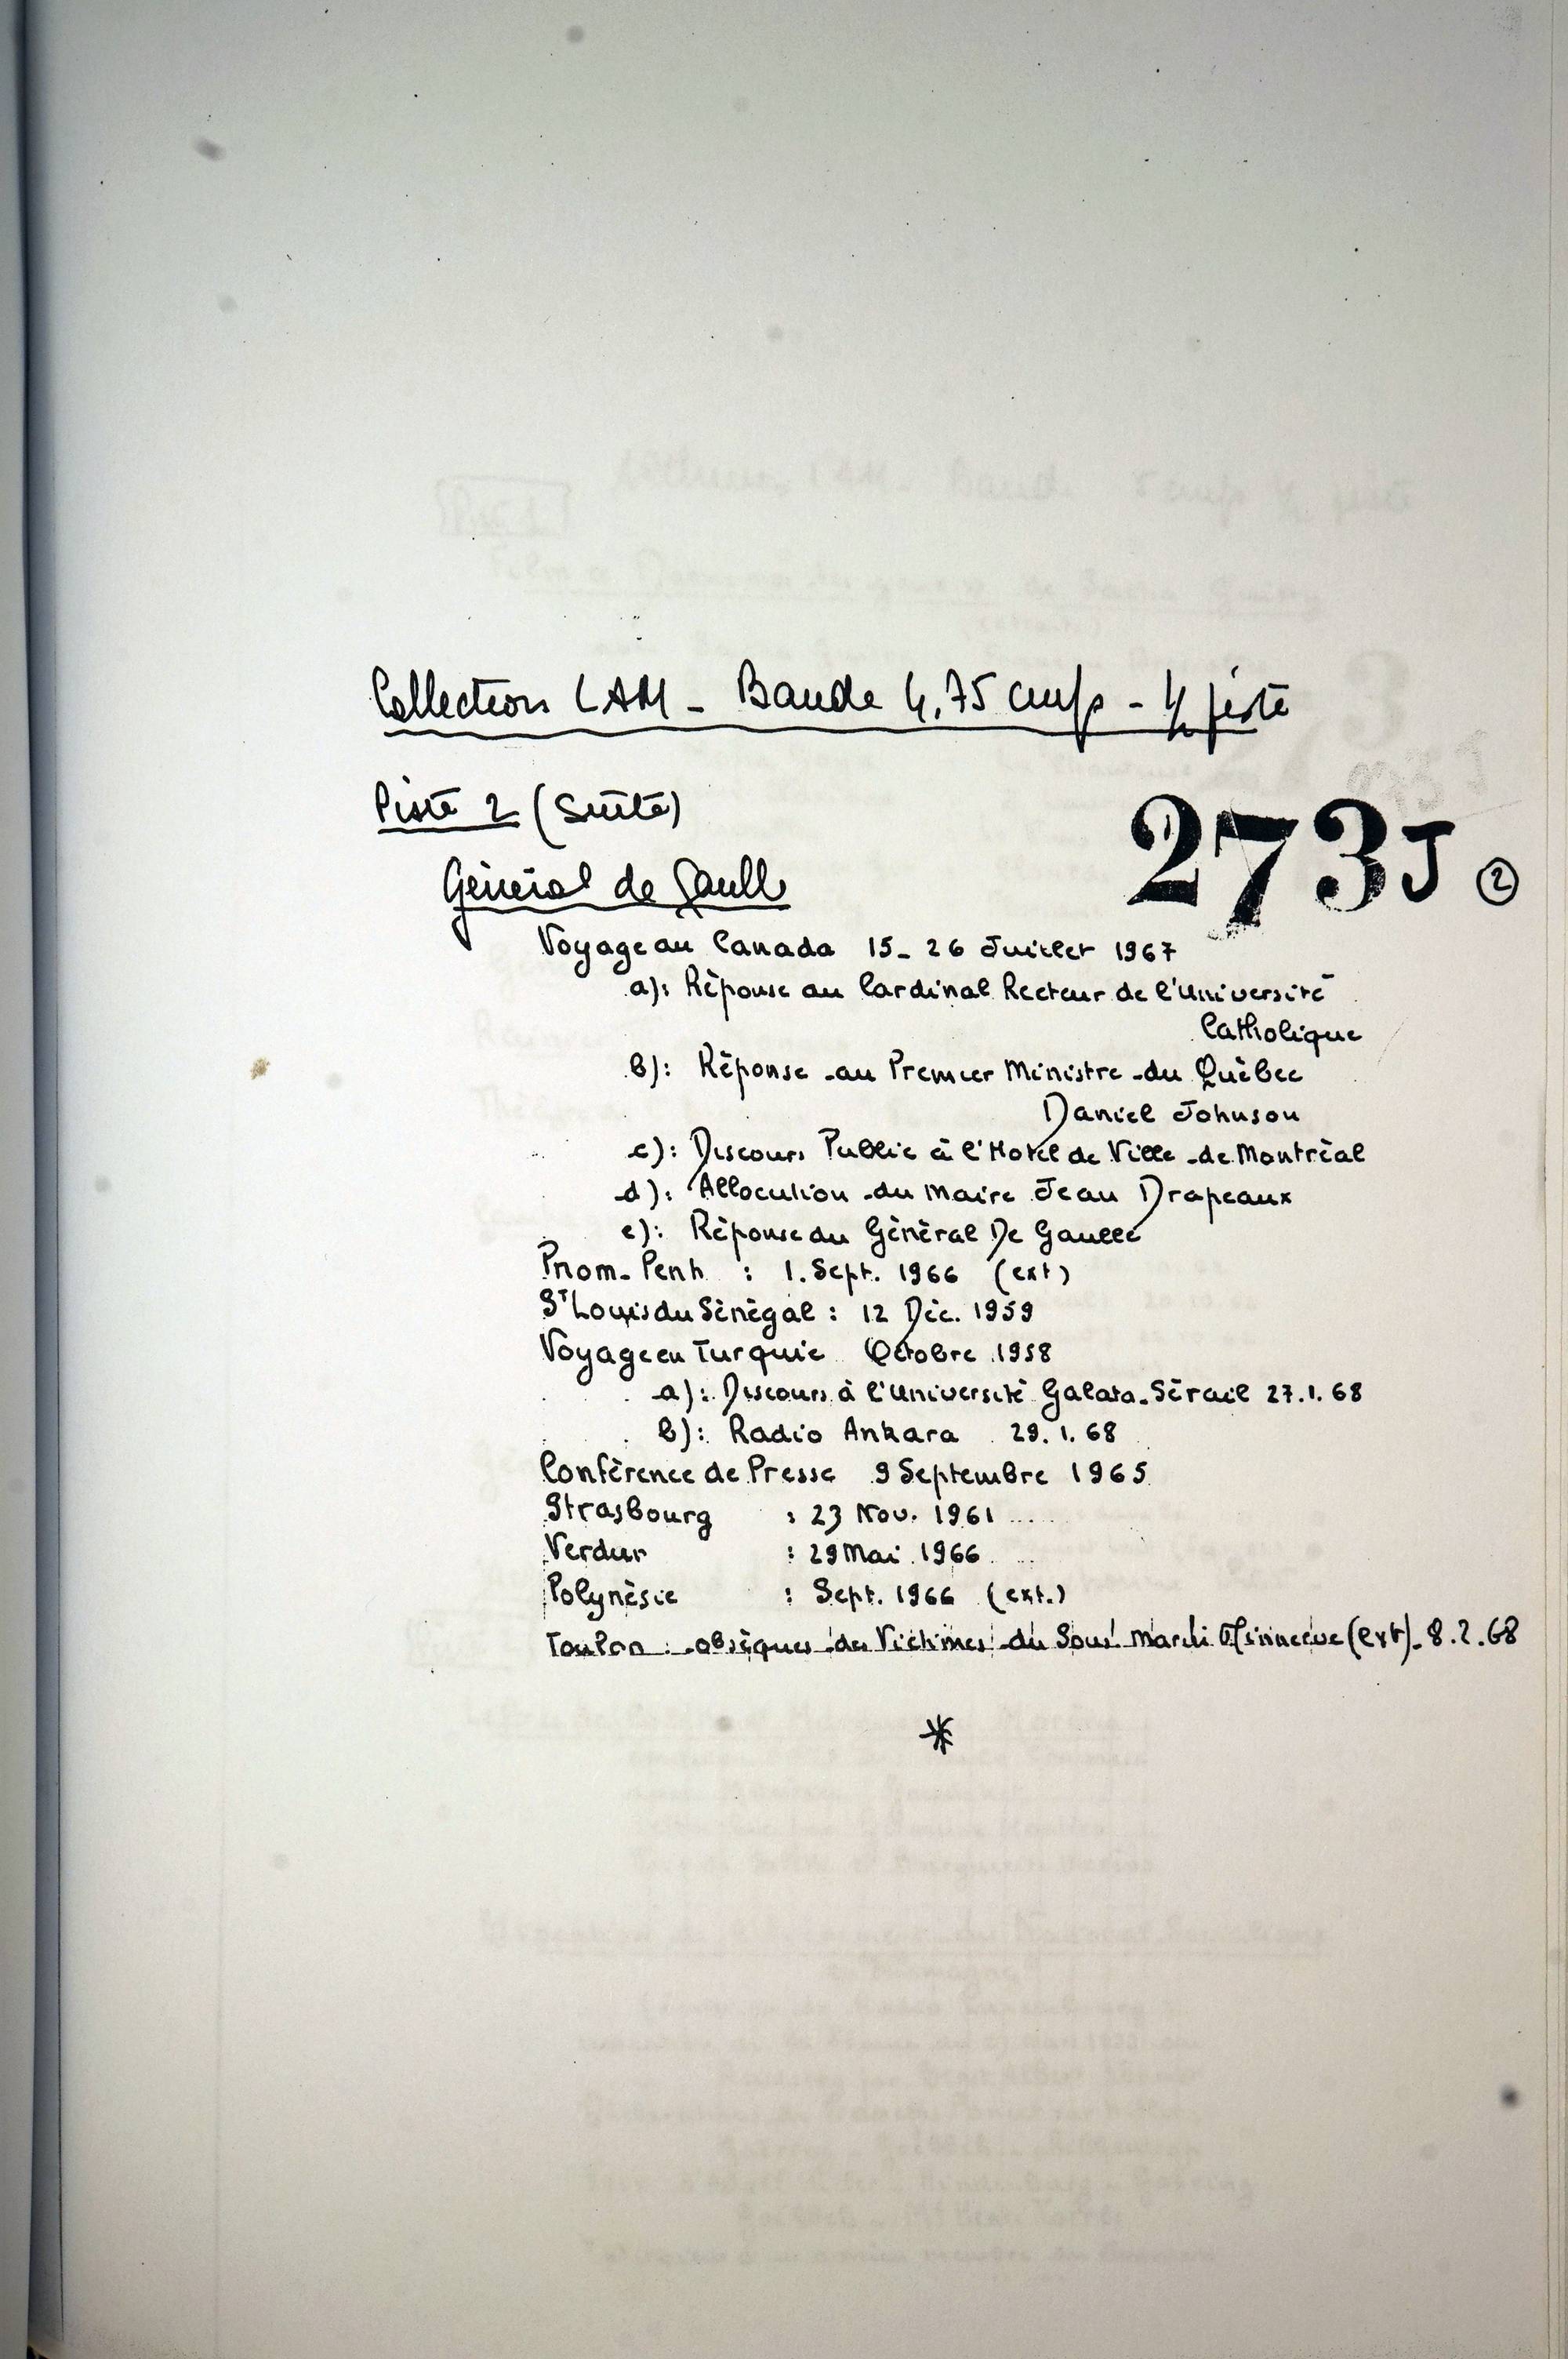 Collection LAM - Bande 4,75 cm/s - ½ piste
Piste 2 (Suite)
273J ②
Général de Gaulle
Voyage au Canada 15-26 Juillet 1967
a): Réponse au Cardinal Recteur de l'Université
Catholique
b): Réponse au Premier Ministre du Québec
Daniel Johnson
c): Discours Public à l'Hotel de Ville de Montréal
d): Allocution du Maire Jean Drapeaux
e): Réponse du Général De Gaulle
Pnom-Penh : 1. Sept. 1966 (ext)
St Louis du Sénégal : 12 Déc. 1959
Voyage en Turquie Octobre 1958
a): Discours à l'Université Galata-Sérail 27.1.68
b): Radio Ankara 29.1.68
Conférence de Presse 9 Septembre 1965
Strasbourg : 23 Nov. 1961
Verdun : 29 Mai 1966
Polynésie : Sept. 1966 (ext.)
Toulon : obsèques des Victimes du Sous Marin Minnerve (ext)- 8.2.68